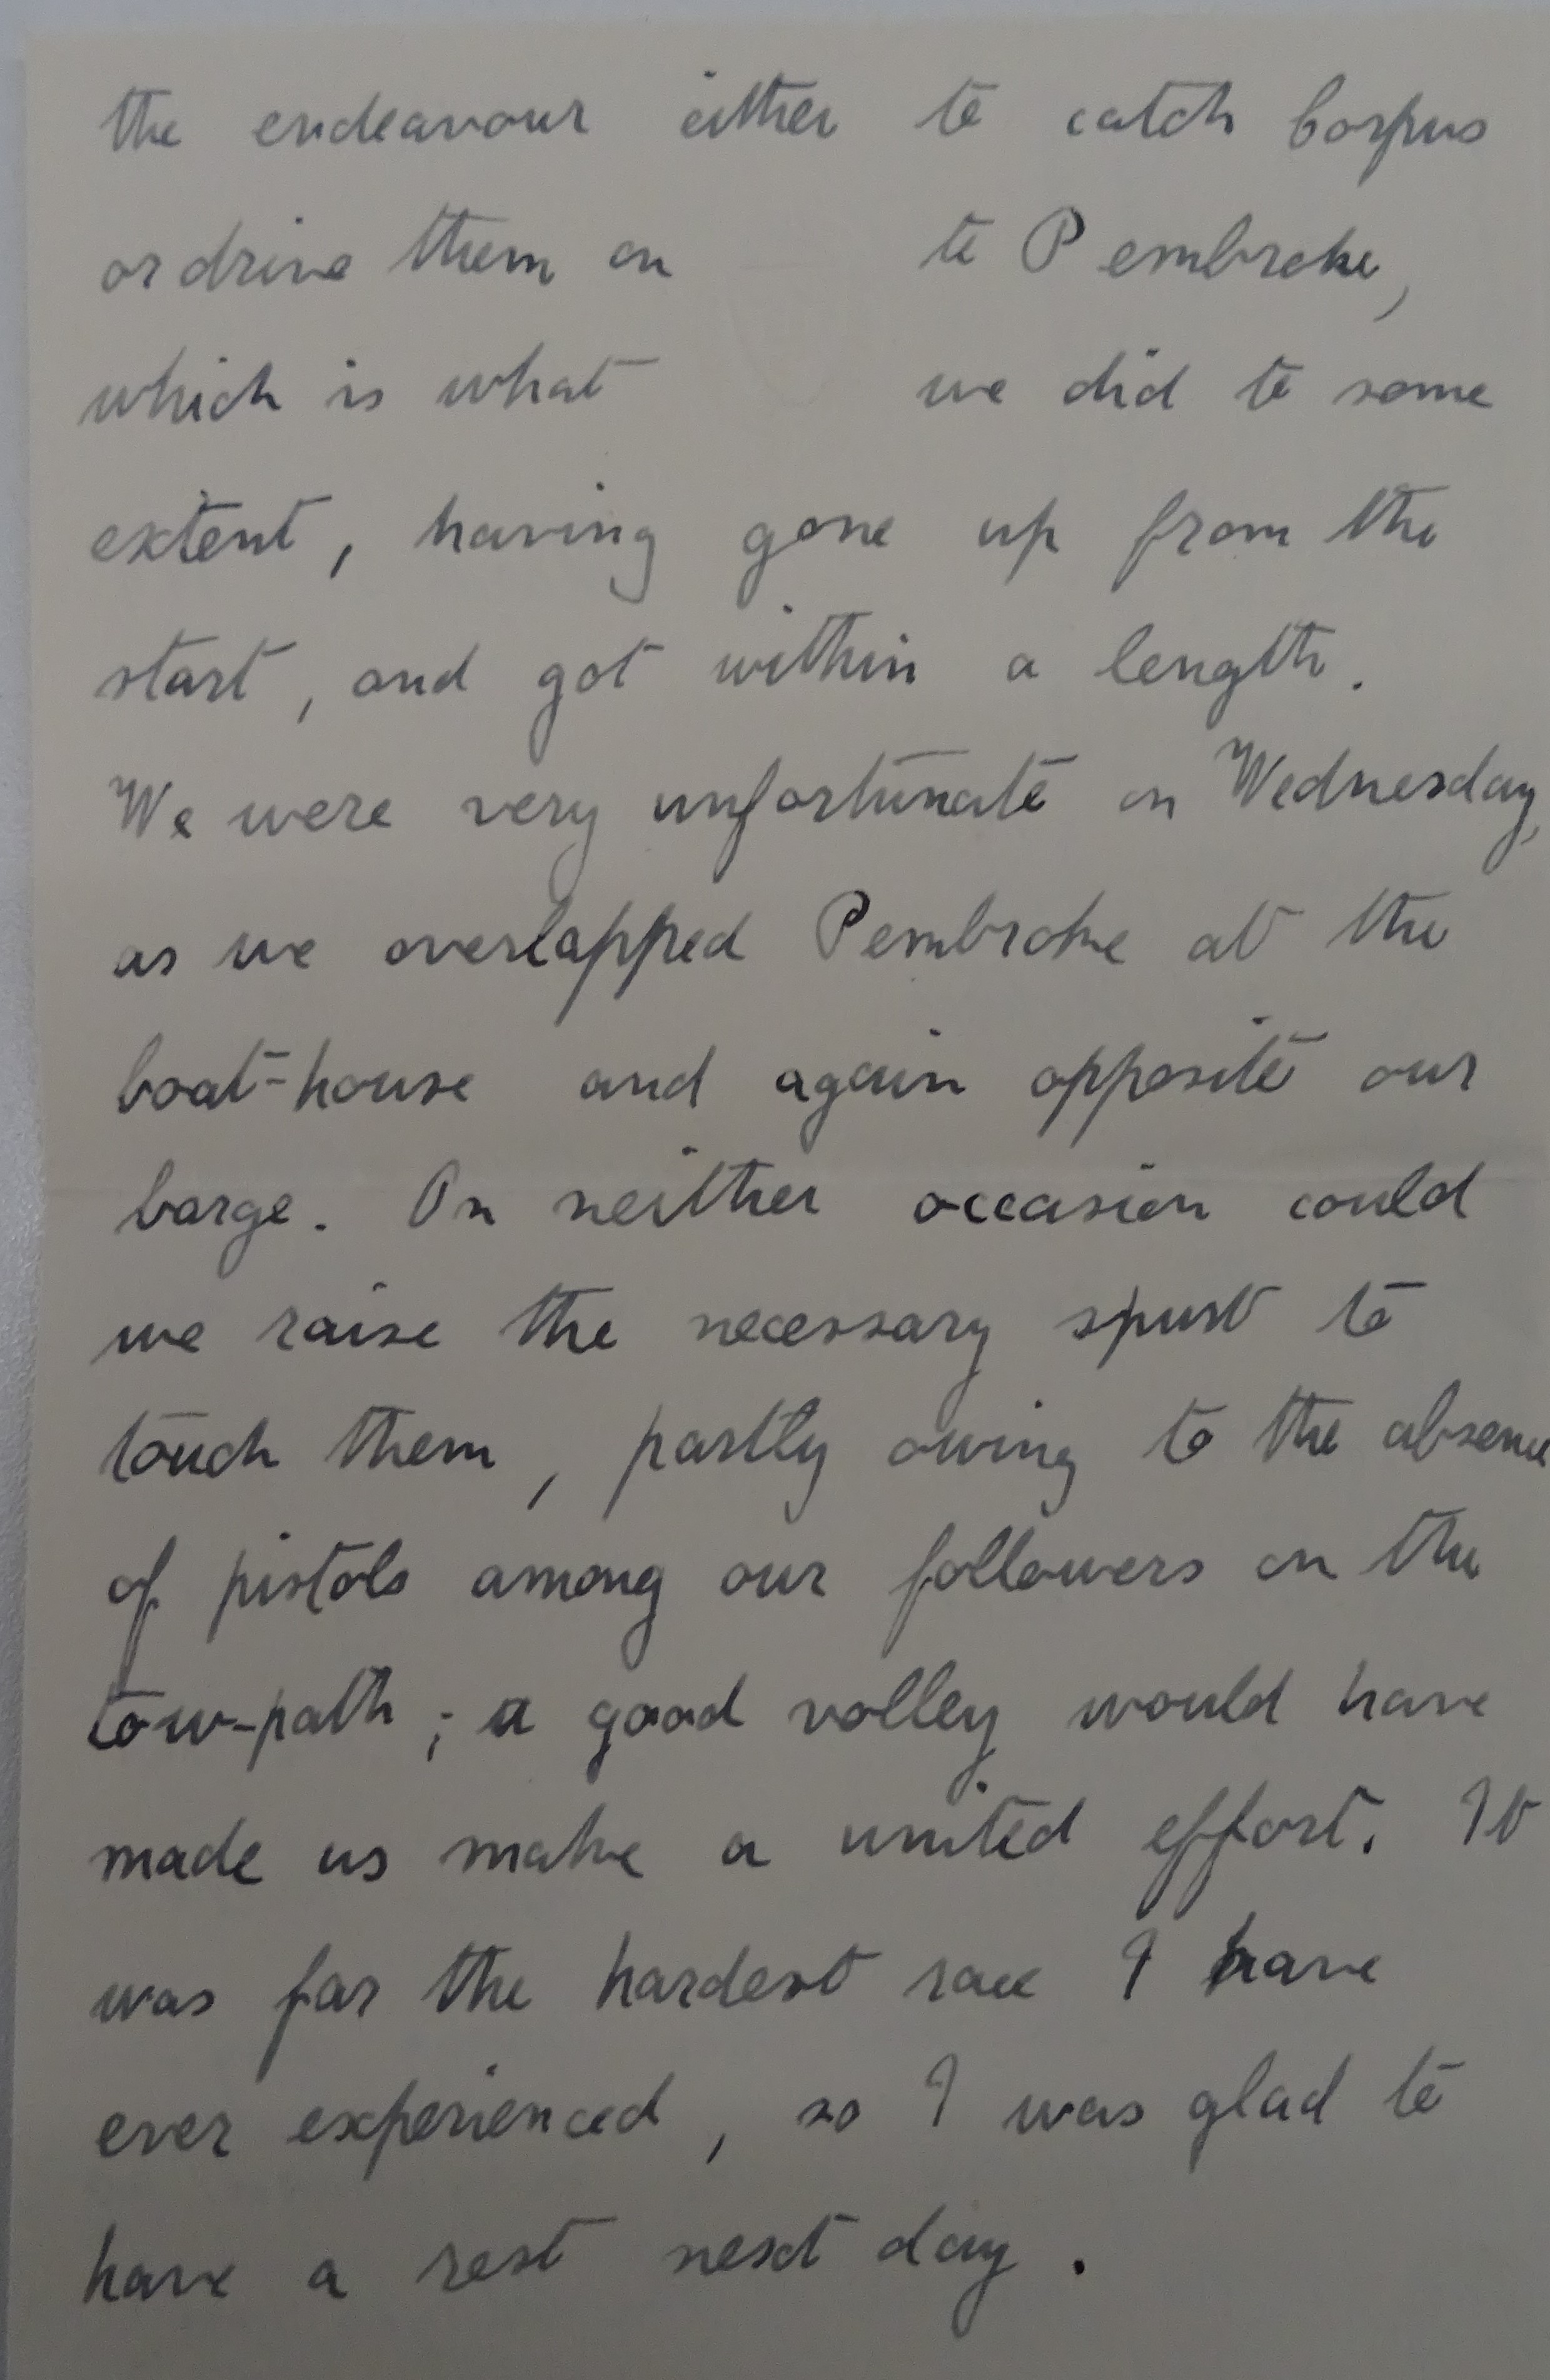 the endeavour either to catch Corpus
or drive them on to Pembroke,
which is what we did to some
extent, having gone up from the
start, and got within a length.
We were very unfortunate on Wednesday,
as we overlapped Pembroke at the
boat-house and again opposite our
barge. On neither occasion could
we raise the necessary spurt to
touch them, partly owing to the absence
of pistols among our followers on the
tow-path; a good volley would have
made us make a united effort. It
was far the hardest race I have
ever experienced, so I was glad to
have a rest next day.